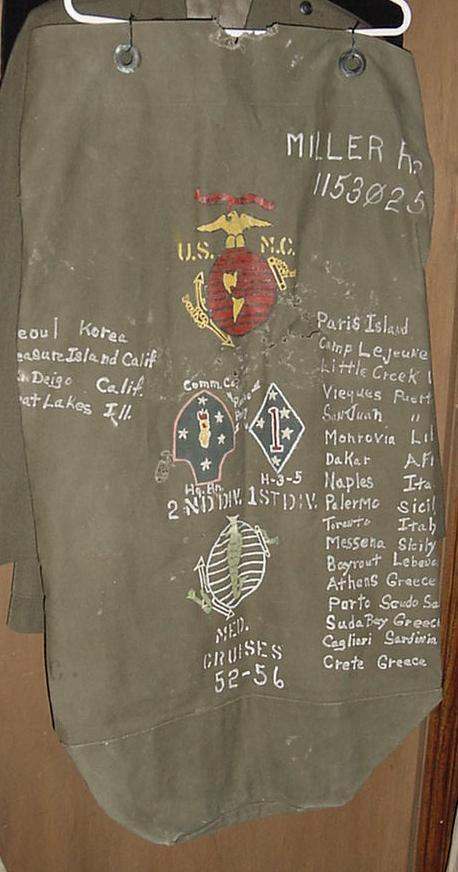 MILLER
1153025
U.S. M.C.
eoul Korea
easure Island Calif
Deigo Calif.
eat Lakes Ill.
Comm. Co
1
Hq. Bn.
H-3-5
2ND DIV. 1ST DIV.
MED.
CRUISES
52-56
Paris Island
Camp Lejeune
Little Creek
Vieques Puert
San Juan "
Monrovia Lib
Dakar Af
Naples Ita
Palermo Sicil
Toranto Italy
Messena Sicily
Bayrout Lebano
Athens Greece
Porto Scudo Sa
Suda Bay Greec
Cagliari Sardinia
Crete Greece